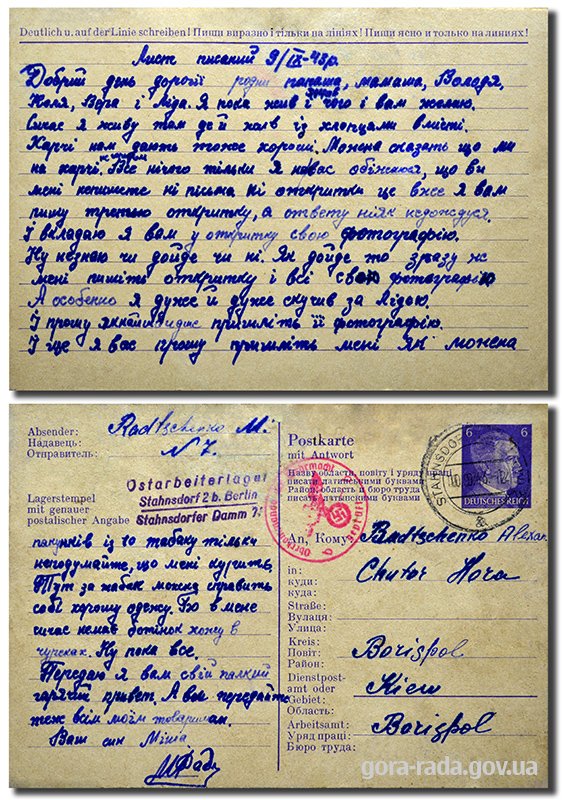 Deutlich u. auf der Linie schreiben! Пиши виразно і тільки на лініях! Пиши ясно и только на линиях!
Лист писаний 9/IX-43р.
Добрий день дорогії родні папаша, мамаша, Володя,
Коля, Вера і Ліда. Я пока жив і чого і вам желаю.
Сичас я живу там де й жив із хлопцами вмісті.
Харчі нам дають тоже хороші. Можна сказать що ми
на харчі. Все нічого тільки я на вас обіжаюся, що ви
мені непишете ні письма ні откритки це вже я вам
пишу третью откритку, а ответу ніяк недождуся.
І вкладаю я вам у откритку свою фотографію.
Ну незнаю чи дойде чи ні. Як дойде то зразу ж
мені пишіть откритку і всі свої фотографію
А особенно я дуже й дуже скучив за Лідою.
І прошу якнайшвидше пришліть її фотографію.
І ще я вас прошу пришліть мені як можена
Absender:
Надавець:
Отправитель:
Radtschenko M:
N 7.
Lagerstempel
mit genauer
postalischer Angabe
Ostarbeiterlager
Stahnsdorf 2 b. Berlin
Stahnsdorfer Damm
пакунків із 10 табаку тільки
неподумайте, що мені курить,
Тут за табак можна справить
собі хорошу одежу. Бо в мене
сичас немає ботінок хожу в
чуреках. Ну пока все.
Передаю я вам свій палкий
гарячий привет. А ви передайте
теж всім моїм товаришам.
Ваш син Міша
Postkarte
mit Antwort
Назву області, повіту і уряду праці
писати латинськими буквами
Район, область и бюро труда
писать латинскими буквами
STAHNSDORF
6
6
DEUTSCHES REICH
An, Кому: Radtschenko Alexan.
in:
куди:
куда:
Chutor Hora
Straße:
Вулиця:
Улица:
Kreis:
Повіт:
Район:
Borispol
Dienstpost-
amt oder
Gebiet:
Область:
Kiew
Arbeitsamt:
Уряд праці:
Бюро труда:
Borispol
gora-rada.gov.ua